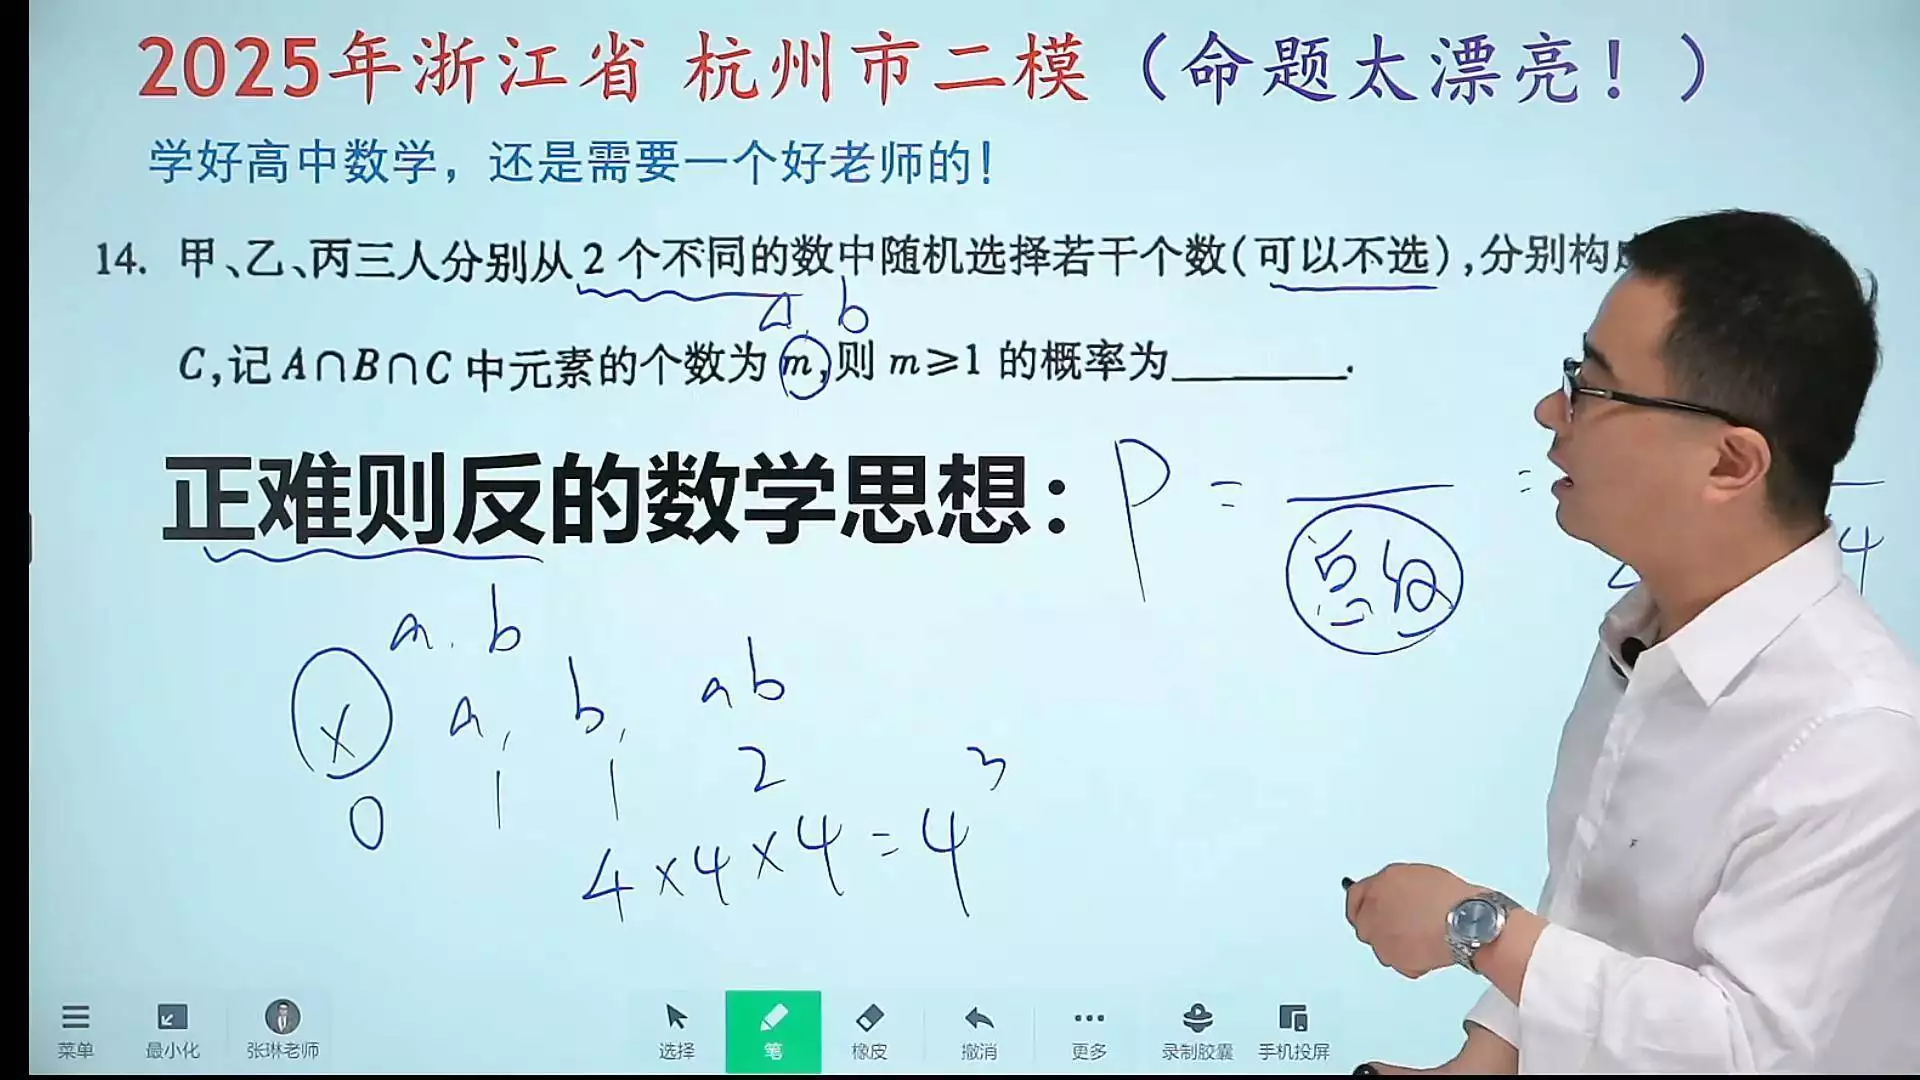 2025年浙江省 杭州市二模（命题太漂亮！）
学好高中数学，还是需要一个好老师的！
14. 甲、乙、丙三人分别从2个不同的数中随机选择若干个数(可以不选),分别构
a, b
C,记A∩B∩C中元素的个数为m,则m≥1的概率为________.
正难则反的数学思想：
P = 总数 =
4
a. b
x a, b, ab
0 1 1 2
4×4×4=4³
菜单 最小化 张琳老师 选择 笔 橡皮 撤消 更多 录制胶囊 手机投屏